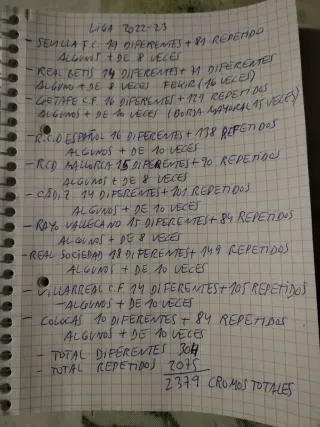 LIGA 2022-23
- SEVILLA F.C. 14 DIFERENTES + 81 REPETIDO
ALGUNOS + DE 8 VECES
- REAL BETIS 14 DIFERENTES + 71 DIFERENTES
ALGUNO + DE 8 VECES FEKIR (16 VECES)
- GETAFE C.F. 16 DIFERENTES + 129 REPETIDOS
ALGUNOS + DE 10 VECES (BORJA MAYORAL 15 VECES)
- R.C.D ESPAÑOL 16 DIFERENTES + 138 REPETIDOS
ALGUNOS + DE 10 VECES
- RCD MALLORCA 15 DIFERENTES + 90 REPETIDOS
ALGUNOS + DE 8 VECES
- CÁDIZ 14 DIFERENTES + 101 REPETIDOS
ALGUNOS + DE 10 VECES
- RAYO VALLECANO 15 DIFERENTES + 84 REPETIDOS
ALGUNOS + DE 8 VECES
- REAL SOCIEDAD 18 DIFERENTES + 149 REPETIDOS
ALGUNOS + DE 10 VECES
- VILLARREAL C.F 14 DIFERENTES + 105 REPETIDOS
- ALGUNOS + DE 10 VECES
- COLOCAS 10 DIFERENTES + 84 REPETIDOS
ALGUNOS + DE 10 VECES
- TOTAL DIFERENTES 304
- TOTAL REPETIDOS 2075
2379 CROMOS TOTALES